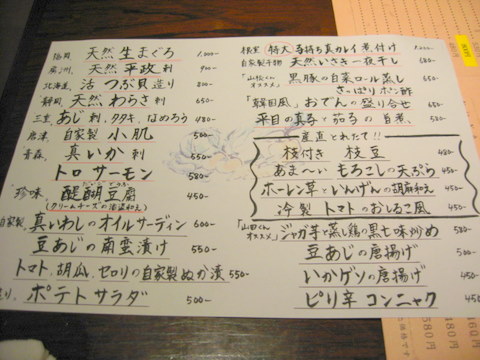 福岡 天然 生まぐろ 1,200-
天然 平政 刺 900-
北海道 活 つぶ貝 造り 800-
静岡 天然 わらさ 刺 650-
三重 あじ 刺、タタキ、なめろう 680-
唐津 自家製 小肌 500-
青森 真いか 刺 550-
トロ サーモン 580-
珍味 醍醐豆腐 450-
(クリームチーズの酒盗和え)
自家製 真いわしのオイルサーディン 600-
豆あじの南蛮漬け 550-
トマト、胡瓜、セロリの自家製ぬか漬 550-
ポテトサラダ 500-
根室 特大 子持ち真カレイ煮付け 1,200-
自家製干物 天然いさき一夜干し 680-
「山松くんオススメ」 黒豚の白菜ロール蒸し 580-
さっぱりポン酢
「韓国風」おでんの盛り合せ 650-
平目の真子と茄子の旨煮 480-
産直とれたて!!
枝付き 枝豆 480-
あま〜い もろこしの天ぷら 450-
ホーレン草といんげんの胡麻和え 400-
冷製 トマトのおしるこ風 400-
「山田くんオススメ」 ジャガ芋と蒸し鶏の黒七味炒め 580-
豆あじの唐揚げ 500-
いかゲソの唐揚げ 450-
ピリ辛 コンニャク 450-